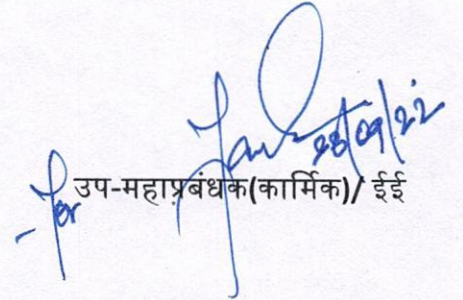 28/09/22
-for उप-महाप्रबंधक(कार्मिक)/ ईई